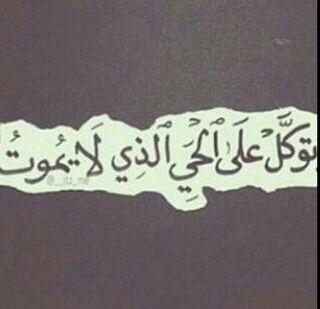 توكَّلْ عَلَى ٱلْحَيِّ ٱلَّذِي لَا يَمُوتُ